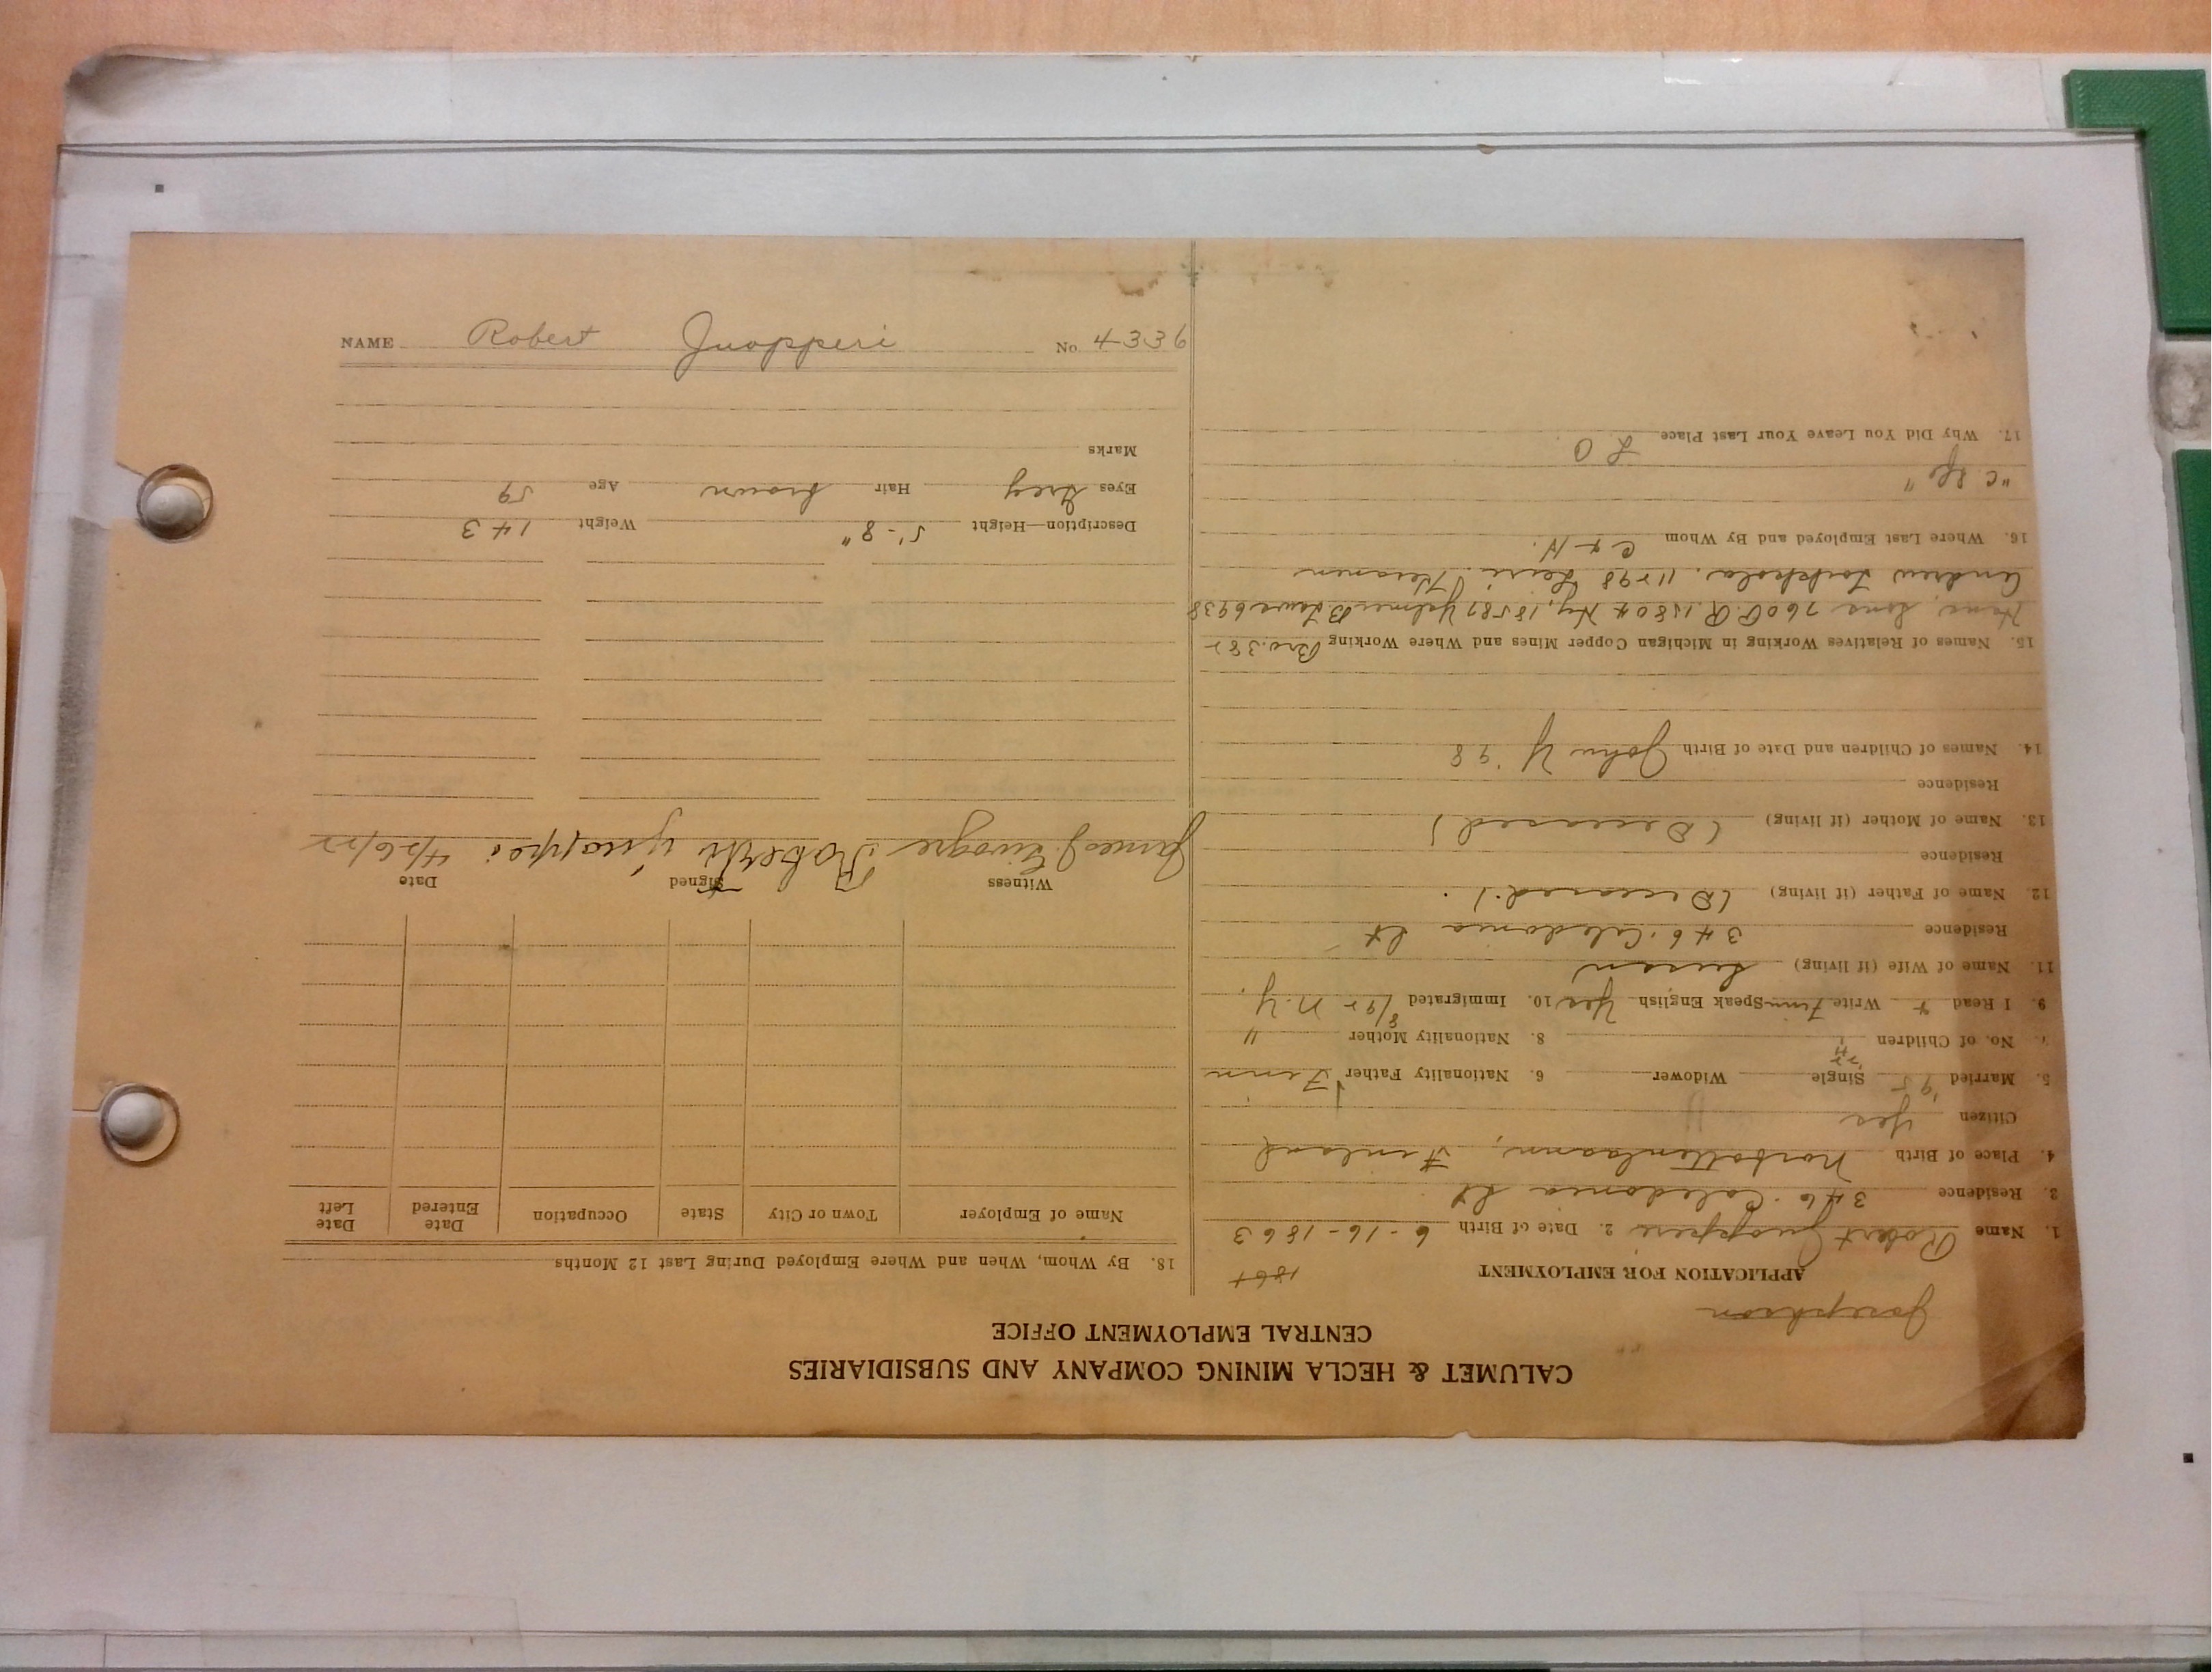 CALUMET & HECLA MINING COMPANY AND SUBSIDIARIES
CENTRAL EMPLOYMENT OFFICE
Josephson
APPLICATION FOR EMPLOYMENT 1864
1. Name Robert Juopperi 2. Date of Birth 6-16-1863
3. Residence 346. Caledonia St
4. Place of Birth Norbottenlaann, Finland
Citizen Yes
5. Married 95 Single Widower 6. Nationality Father Finn
7. No. of Children 1 8. Nationality Mother "
9. I Read + Write Finn Speak English Yes 10. Immigrated 8/92 N.Y.
11. Name of Wife (if living) Susan
Residence 346. Caledonia St
12. Name of Father (if living) (Deceased.)
Residence
13. Name of Mother (if living) (Deceased)
Residence
14. Names of Children and Date of Birth John Y '98
15. Names of Relatives Working in Michigan Copper Mines and Where Working Bro. 382
Andrew 11298
16. Where Last Employed and By Whom C + H.
17. Why Did You Leave Your Last Place L O
18. By Whom, When and Where Employed During Last 12 Months
Name of Employer Town or City State Occupation Date Entered Date Left
Witness Signed Date
James J. Robertti 4/26/22
Description—Height 5'-8" Weight 143
Eyes Grey Hair brown Age 59
Marks
NAME Robert Juopperi No. 4336